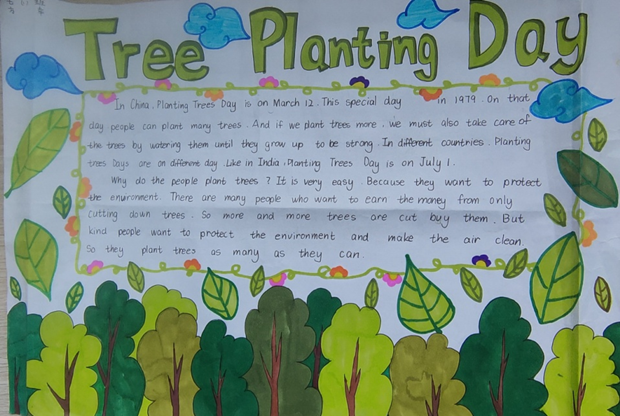 Tree Planting Day
In China, Planting Trees Day is on March 12. This special day in 1979. On that
day people can plant many trees. And if we plant trees more, we must also take care of
the trees by watering them until they grow up to be strong. In different countries. Planting
trees Days are on different day. Like in India, Planting Trees Day is on July 1.
Why do the people plant trees? It is very easy. Because they want to protect
the enuronment. There are many people who want to earn the money from only
cutting down trees. So more and more trees are cut buy them. But
kind people want to protect the environment and make the air clean.
So they plant trees as many as they can.